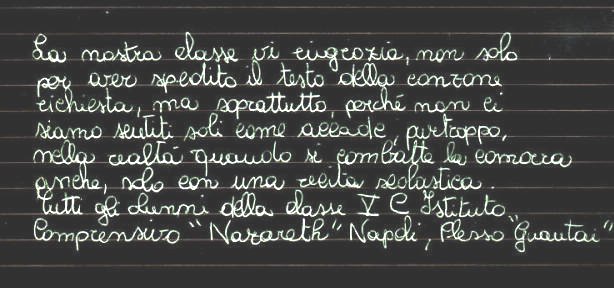 La nostra classe vi ringrazia, non solo
per aver spedito il testo della canzone
richiesta, ma soprattutto, perché non ci
siamo sentiti soli come accade, purtroppo,
nella realtà quando si combatte la camorra
anche, solo con una recita scolastica.
Tutti gli alunni della classe V C Istituto
Comprensivo "Nazareth" Napoli, Plesso "Guantai"